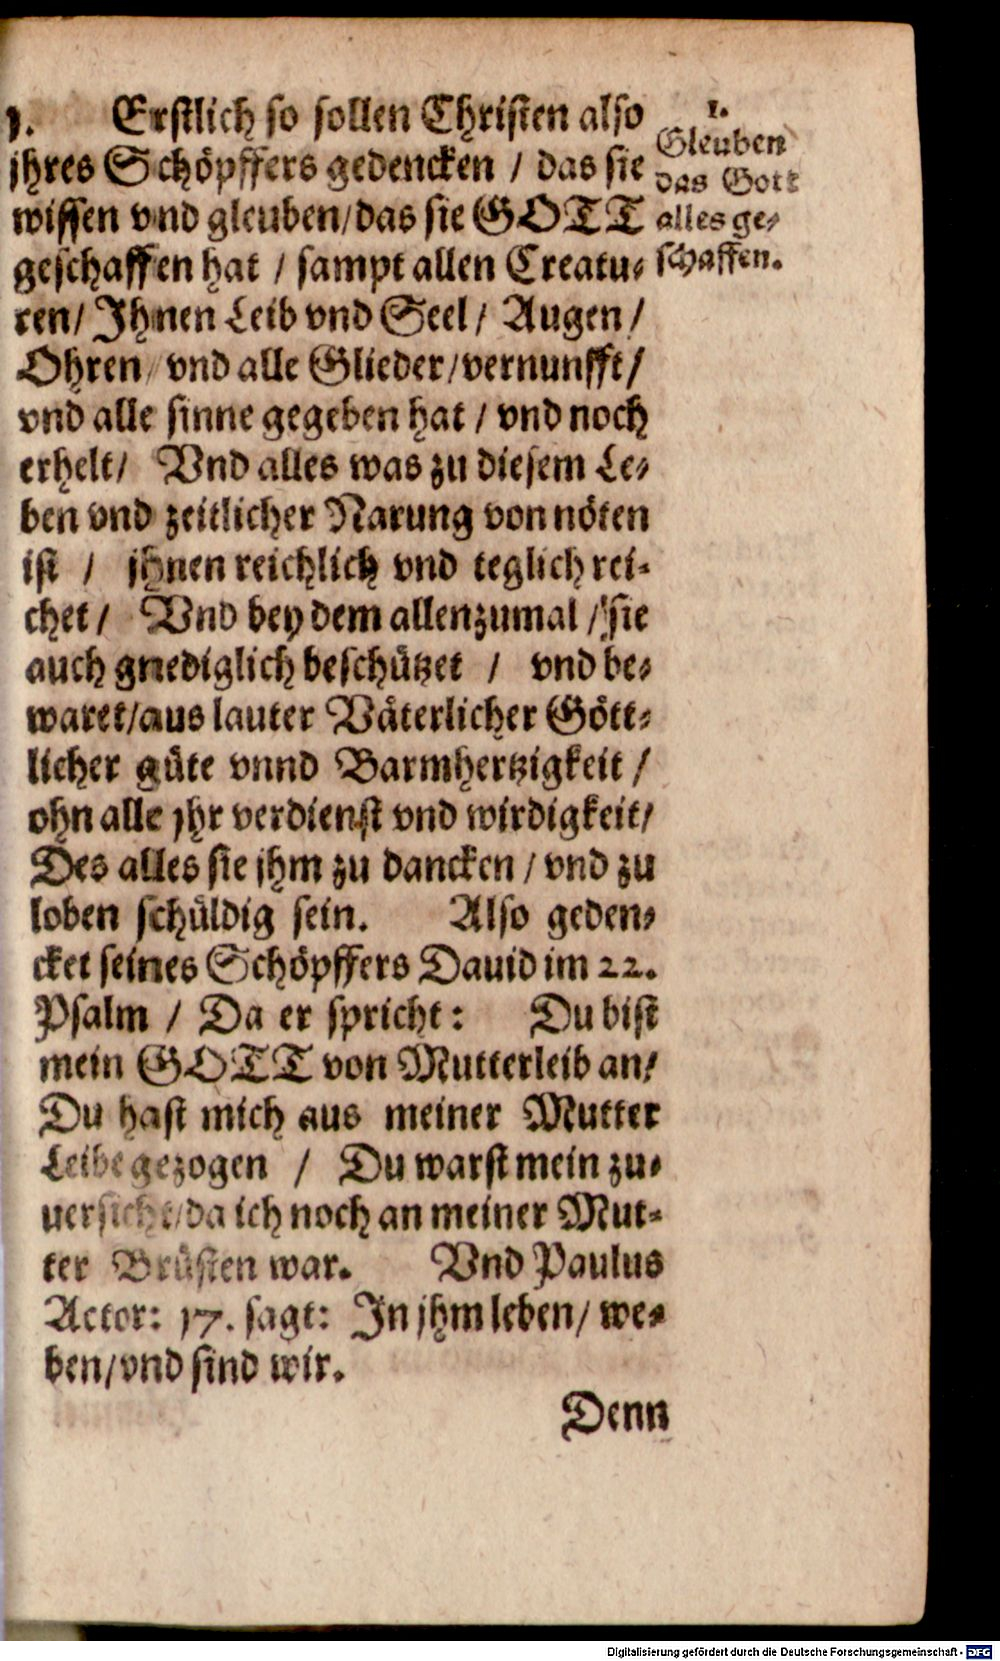 1. Erstlich so sollen Christen also
jhres Schöpffers gedencken / das sie
wissen vnd gleuben/das sie GOTT
geschaffen hat / sampt allen Creatu-
ren/ Ihnen Leib vnd Seel/ Augen/
Ohren/ vnd alle Glieder/vernunfft/
vnd alle sinne gegeben hat / vnd noch
erhelt/ Vnd alles was zu diesem Le-
ben vnd zeitlicher Narung von nöten
ist / jhnen reichlich vnd teglich rei-
chet/ Vnd bey dem allenzumal / sie
auch gnediglich beschützet / vnd be-
waret/aus lauter Väterlicher Gött-
licher güte vnnd Barmhertzigkeit /
ohn alle jhr verdienst vnd wirdigkeit/
Des alles sie jhm zu dancken / vnd zu
loben schüldig sein. Also geden-
cket seines Schöpffers Dauid im 22.
Psalm / Da er spricht: Du bist
mein GOTT von Mutterleib an/
Du hast mich aus meiner Mutter
Leibe gezogen / Du warst mein zu-
uersicht/da ich noch an meiner Mut-
ter Brüsten war. Vnd Paulus
Actor: 17. sagt: In jhm leben/ we-
ben/vnd sind wir.
Denn
1.
Gleuben
das Gott
alles ge-
schaffen.
Digitalisierung gefördert durch die Deutsche Forschungsgemeinschaft - DFG